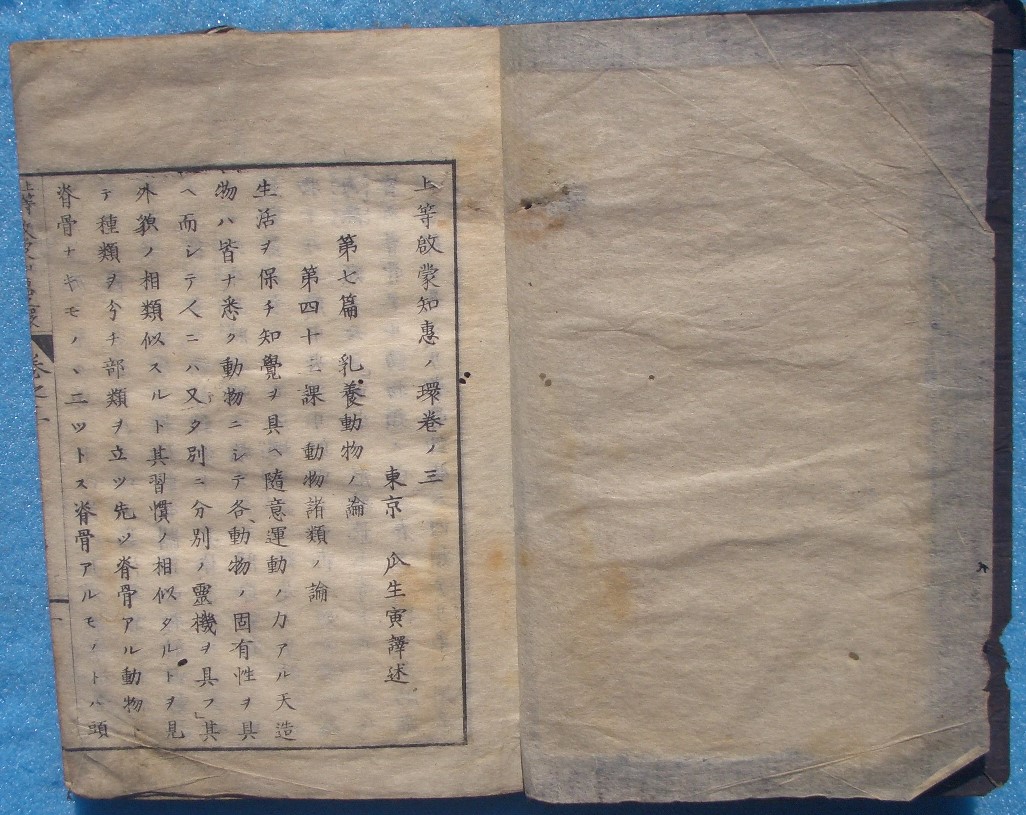 上等啟蒙知惠ノ環卷ノ三
東京 瓜生寅譯述
第七篇 乳養動物ノ論
第四十三課 動物諸類ノ論
生活ヲ保チ知覺ヲ具ヘ隨意運動ノ力アル天造
物ハ皆ナ悉ク動物ニシテ各、動物ノ固有性ヲ具
ヘ而シテ人ニハ又タ別ニ分別ノ靈機ヲ具フ」其
外貌ノ相類似スルト其習慣ノ相似タルトヲ見
テ種類ヲ分チ部類ヲ立ツ先ツ脊骨アル動物、
脊骨ナキモノ、二ツトス脊骨アルモノトハ頭
卷之三